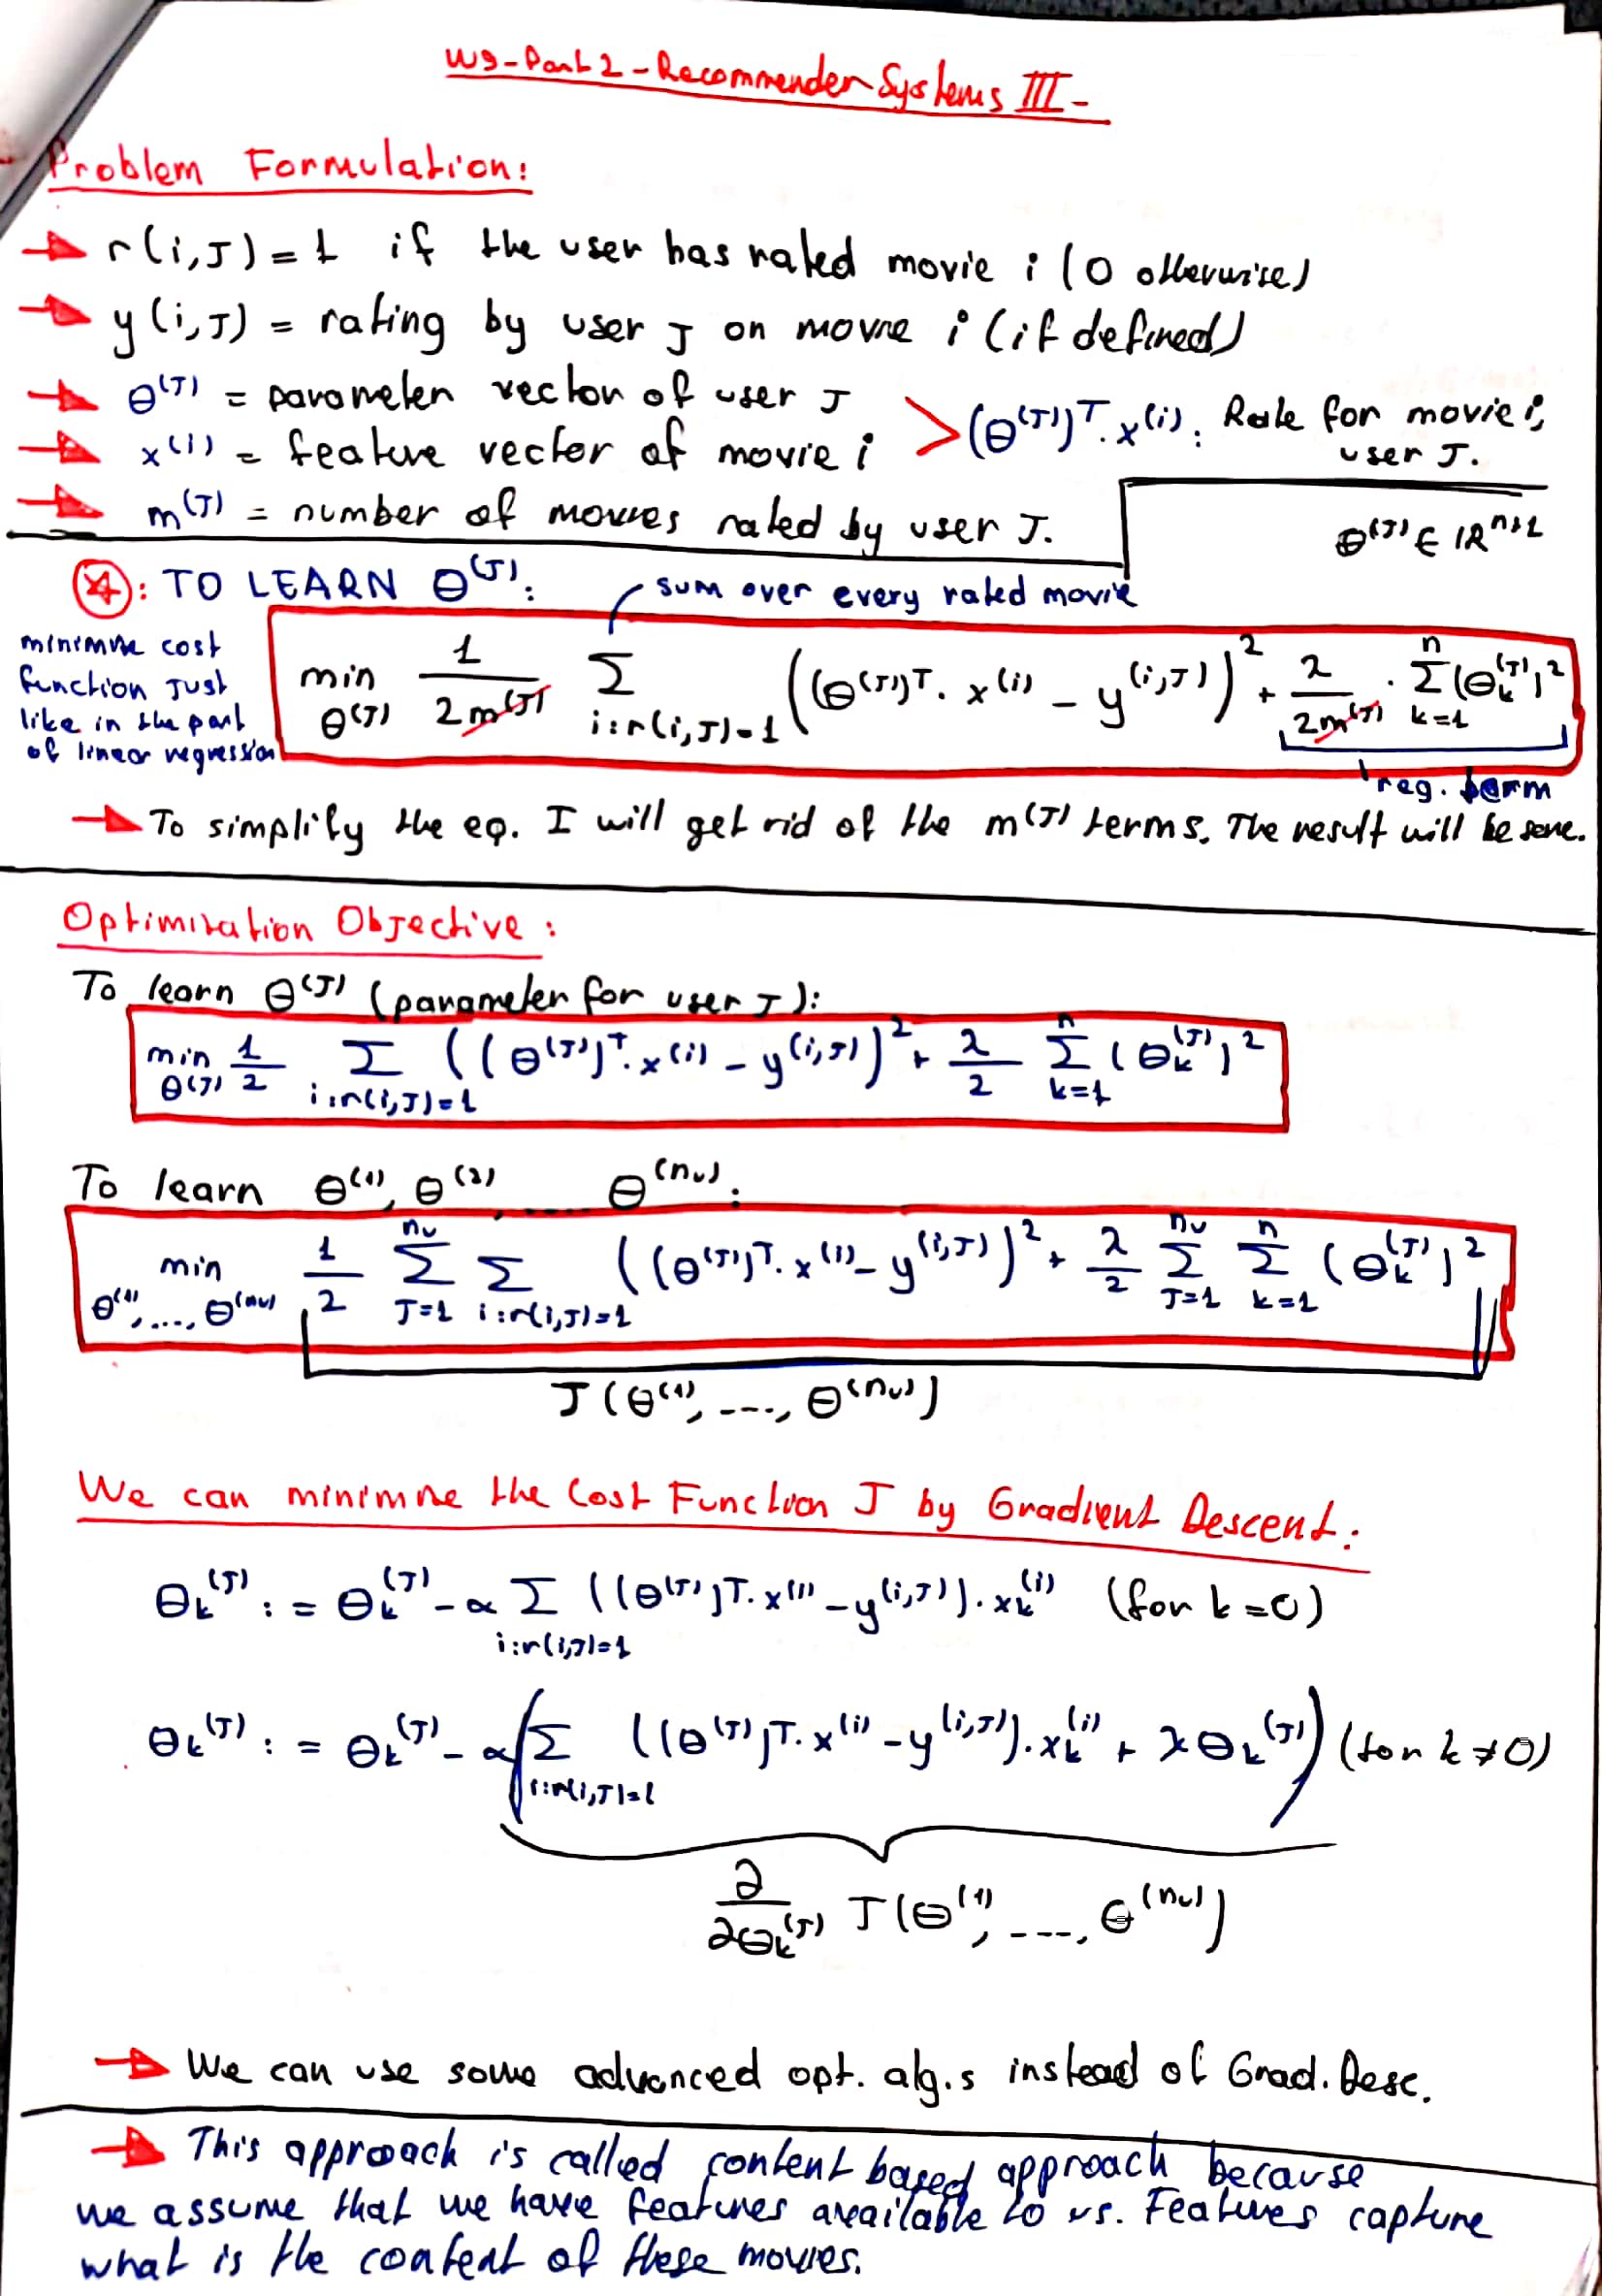 W9-Part 2-Recommender Systems III-
Problem Formulation:
→ r(i,J)=1 if the user has rated movie i (0 otherwise)
→ y(i,J) = rating by user J on movie i (if defined)
→ θ^(J) = parameter vector of user J > (θ^(J))^T . x^(i) : Rate for movie i, user J.
→ x^(i) = feature vector of movie i
→ m^(J) = number of movies rated by user J.
θ^(J) ∈ IR^n+1
*: TO LEARN θ^(J):
sum over every rated movie
minimize cost
function just
like in the part
of linear regression
min_θ^(J) 1/2m^(J) Σ_i:r(i,J)=1 ((θ^(J))^T . x^(i) - y^(i,J))^2 + λ/2m^(J) . Σ_k=1^n (θ_k^(J))^2
reg. term
→ To simplify the eq. I will get rid of the m^(J) terms. The result will be same.
Optimization Objective:
To learn θ^(J) (parameter for user J):
min_θ^(J) 1/2 Σ_i:r(i,J)=1 ((θ^(J))^T . x^(i) - y^(i,J))^2 + λ/2 Σ_k=1^n (θ_k^(J))^2
To learn θ^(1), θ^(2), ..... θ^(nu):
min_θ^(1),...,θ^(nu) 1/2 Σ_J=1^nu Σ_i:r(i,J)=1 ((θ^(J))^T . x^(i) - y^(i,J))^2 + λ/2 Σ_J=1^nu Σ_k=1^n (θ_k^(J))^2
J(θ^(1), ---., θ^(nu))
We can minimize the Cost Function J by Gradient Descent:
θ_k^(J) := θ_k^(J) - α Σ_i:r(i,J)=1 ((θ^(J))^T . x^(i) - y^(i,J)) . x_k^(i) (for k=0)
θ_k^(J) := θ_k^(J) - α (Σ_i:r(i,J)=1 ((θ^(J))^T . x^(i) - y^(i,J)) . x_k^(i) + λ θ_k^(J)) (for k≠0)
∂/∂θ_k^(J) J(θ^(1), ---., θ^(nu))
→ We can use some advanced opt. alg.s instead of Grad. Desc.
→ This approach is called content based approach because
we assume that we have features available to us. Features capture
what is the content of these movies.